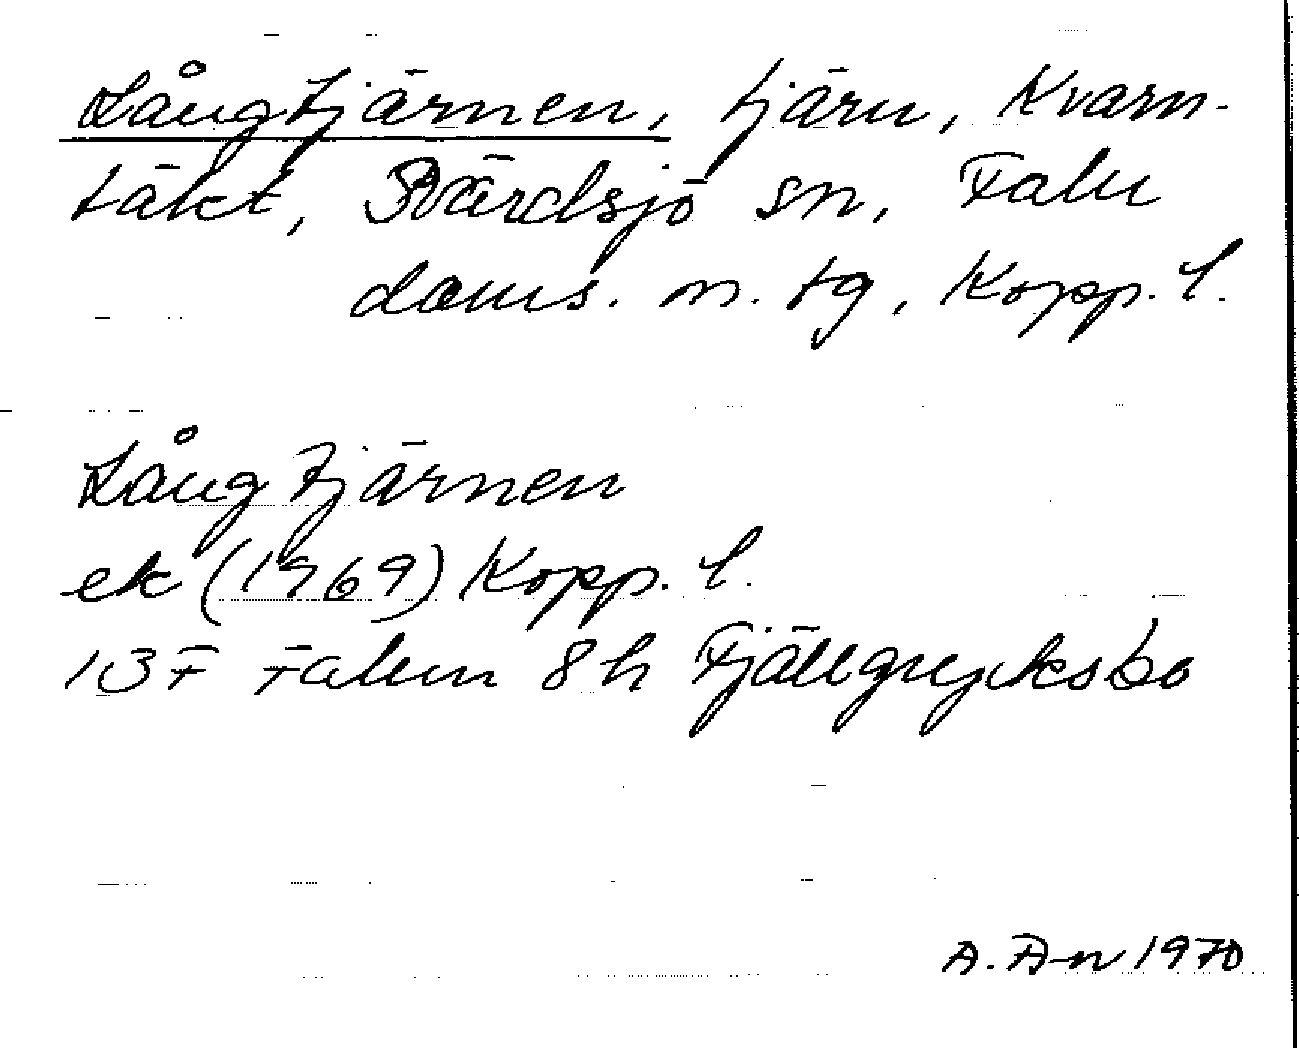 Långtjärnen, tjärn, Kvarn-
täkt, Svärdsjö sn, Falu
doms. n. tg, Kopp. l.
Långtjärnen
ek (1969) Kopp. l.
13F Falun 8h Fjällgrycksbo
A. A-n 1970